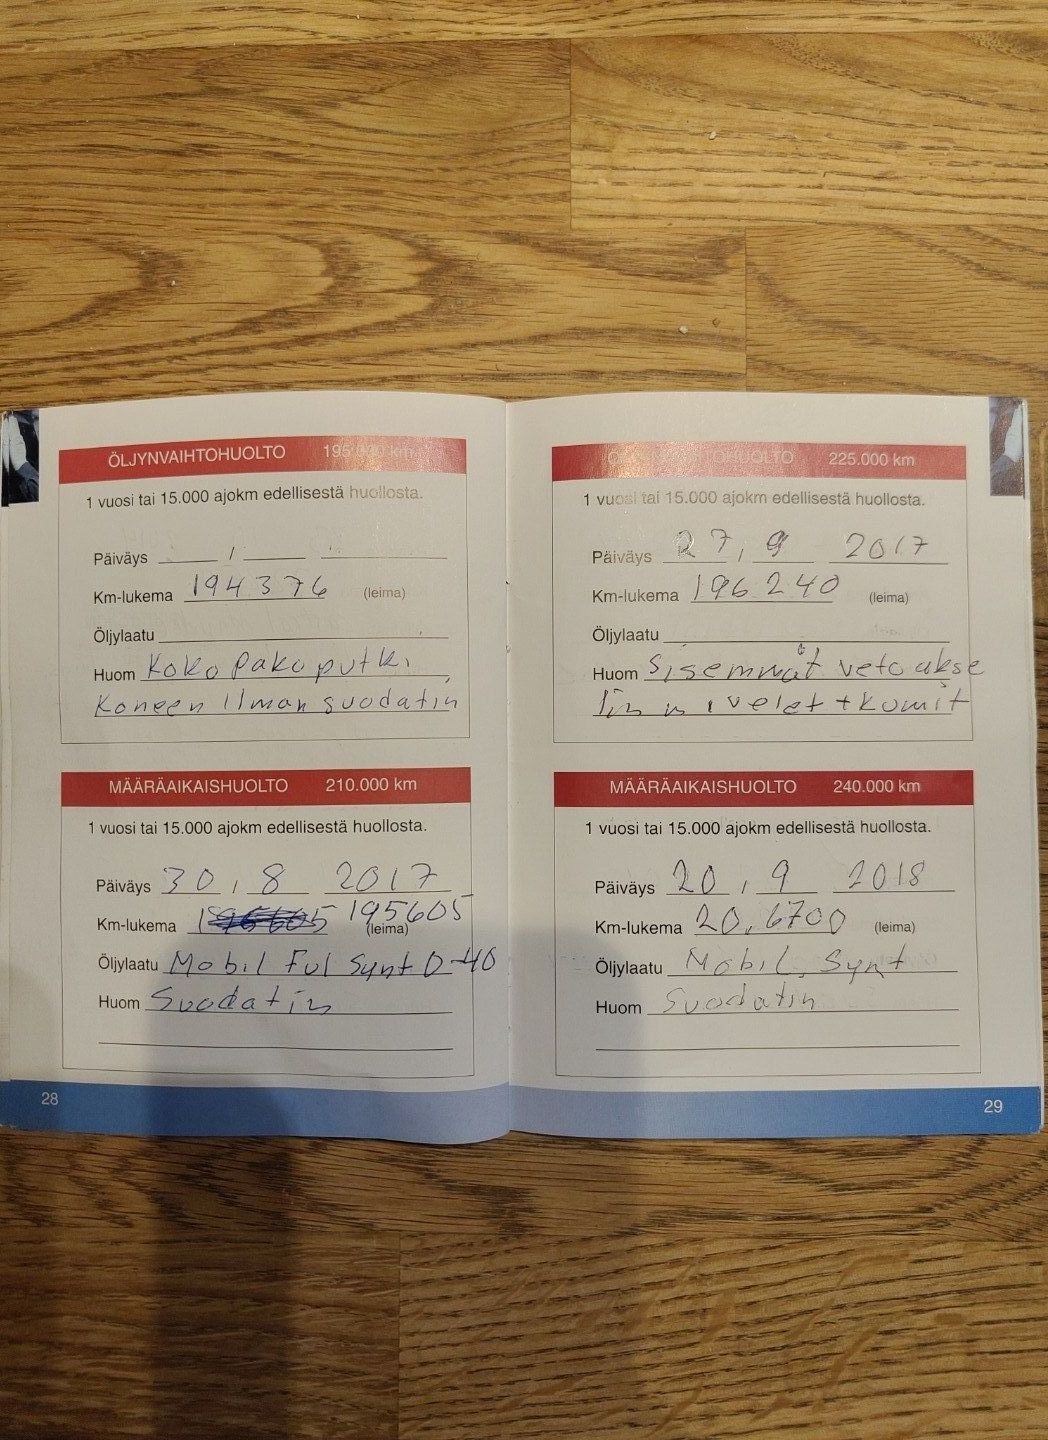 ÖLJYNVAIHTOHUOLTO 195.000 km
1 vuosi tai 15.000 ajokm edellisestä huollosta.
Päiväys
Km-lukema 194376 (leima)
Öljylaatu
Huom Koko Pakoputki
Koneen Ilman suodatin
MÄÄRÄAIKAISHUOLTO 210.000 km
1 vuosi tai 15.000 ajokm edellisestä huollosta.
Päiväys 30 , 8 2017
Km-lukema 195605 (leima)
Öljylaatu Mobil Ful Synt 0-40
Huom Suodatin
28
ÖLJYNVAIHTOHUOLTO 225.000 km
1 vuosi tai 15.000 ajokm edellisestä huollosta.
Päiväys 27, 9 2017
Km-lukema 196240 (leima)
Öljylaatu
Huom Sisemmät vetoakse
lin nivelet + kumit
MÄÄRÄAIKAISHUOLTO 240.000 km
1 vuosi tai 15.000 ajokm edellisestä huollosta.
Päiväys 20 , 9 2018
Km-lukema 20,6700 (leima)
Öljylaatu Mobil, Synt
Huom Suodatin
29